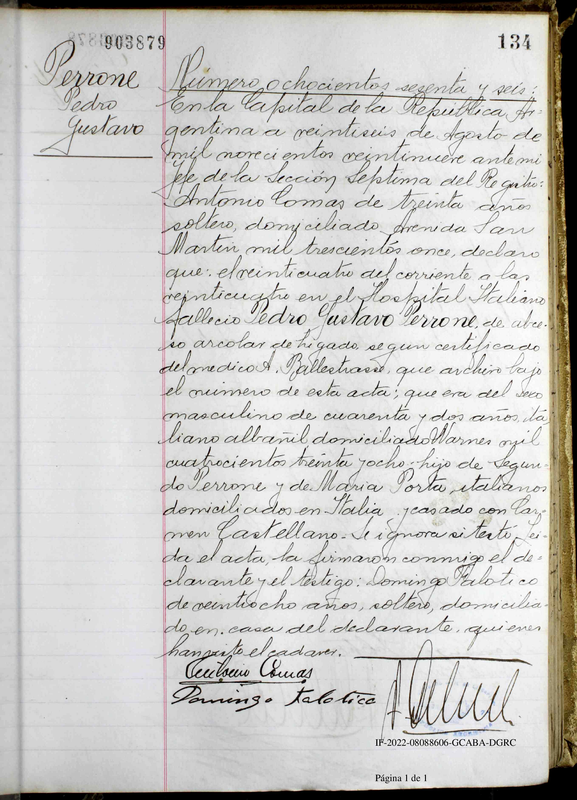 903879
134
Perrone
Pedro
Gustavo
Número ochocientos sesenta y seis:
En la Capital de la República Ar-
gentina a veintiseis de Agosto de
mil novecientos veintinueve ante mi
Jefe de la Sección Septima del Registro:
Antonio Comas de treinta años
soltero, domiciliado Avenida San
Martin mil trescientos once, declaro
que: el veinticuatro del corriente a las
veinticuatro en el Hospital Italiano
fallecio Pedro Gustavo Perrone, de abce-
so areolar de higado segun certificado
del medico A. Ballestrasse, que archivo bajo
el numero de esta acta; que era del sexo
masculino de cuarenta y dos años, ita
liano albañil domiciliado Warnes mil
cuatrocientos treinta y ocho - hijo de Segun-
do Perrone y de Maria Porta, italianos
domiciliados en Italia y casado con Car
men Castellano - Se ignora si testó. Lei-
da el acta, la firmaron conmigo el de-
clarante y el testigo: Domingo Talotico
de veintiocho años, soltero, domicilia-
do en casa del declarante, quienes
han visto el cadaver.
Comas
Domingo Talotico
IF-2022-08088606-GCABA-DGRC
Página 1 de 1